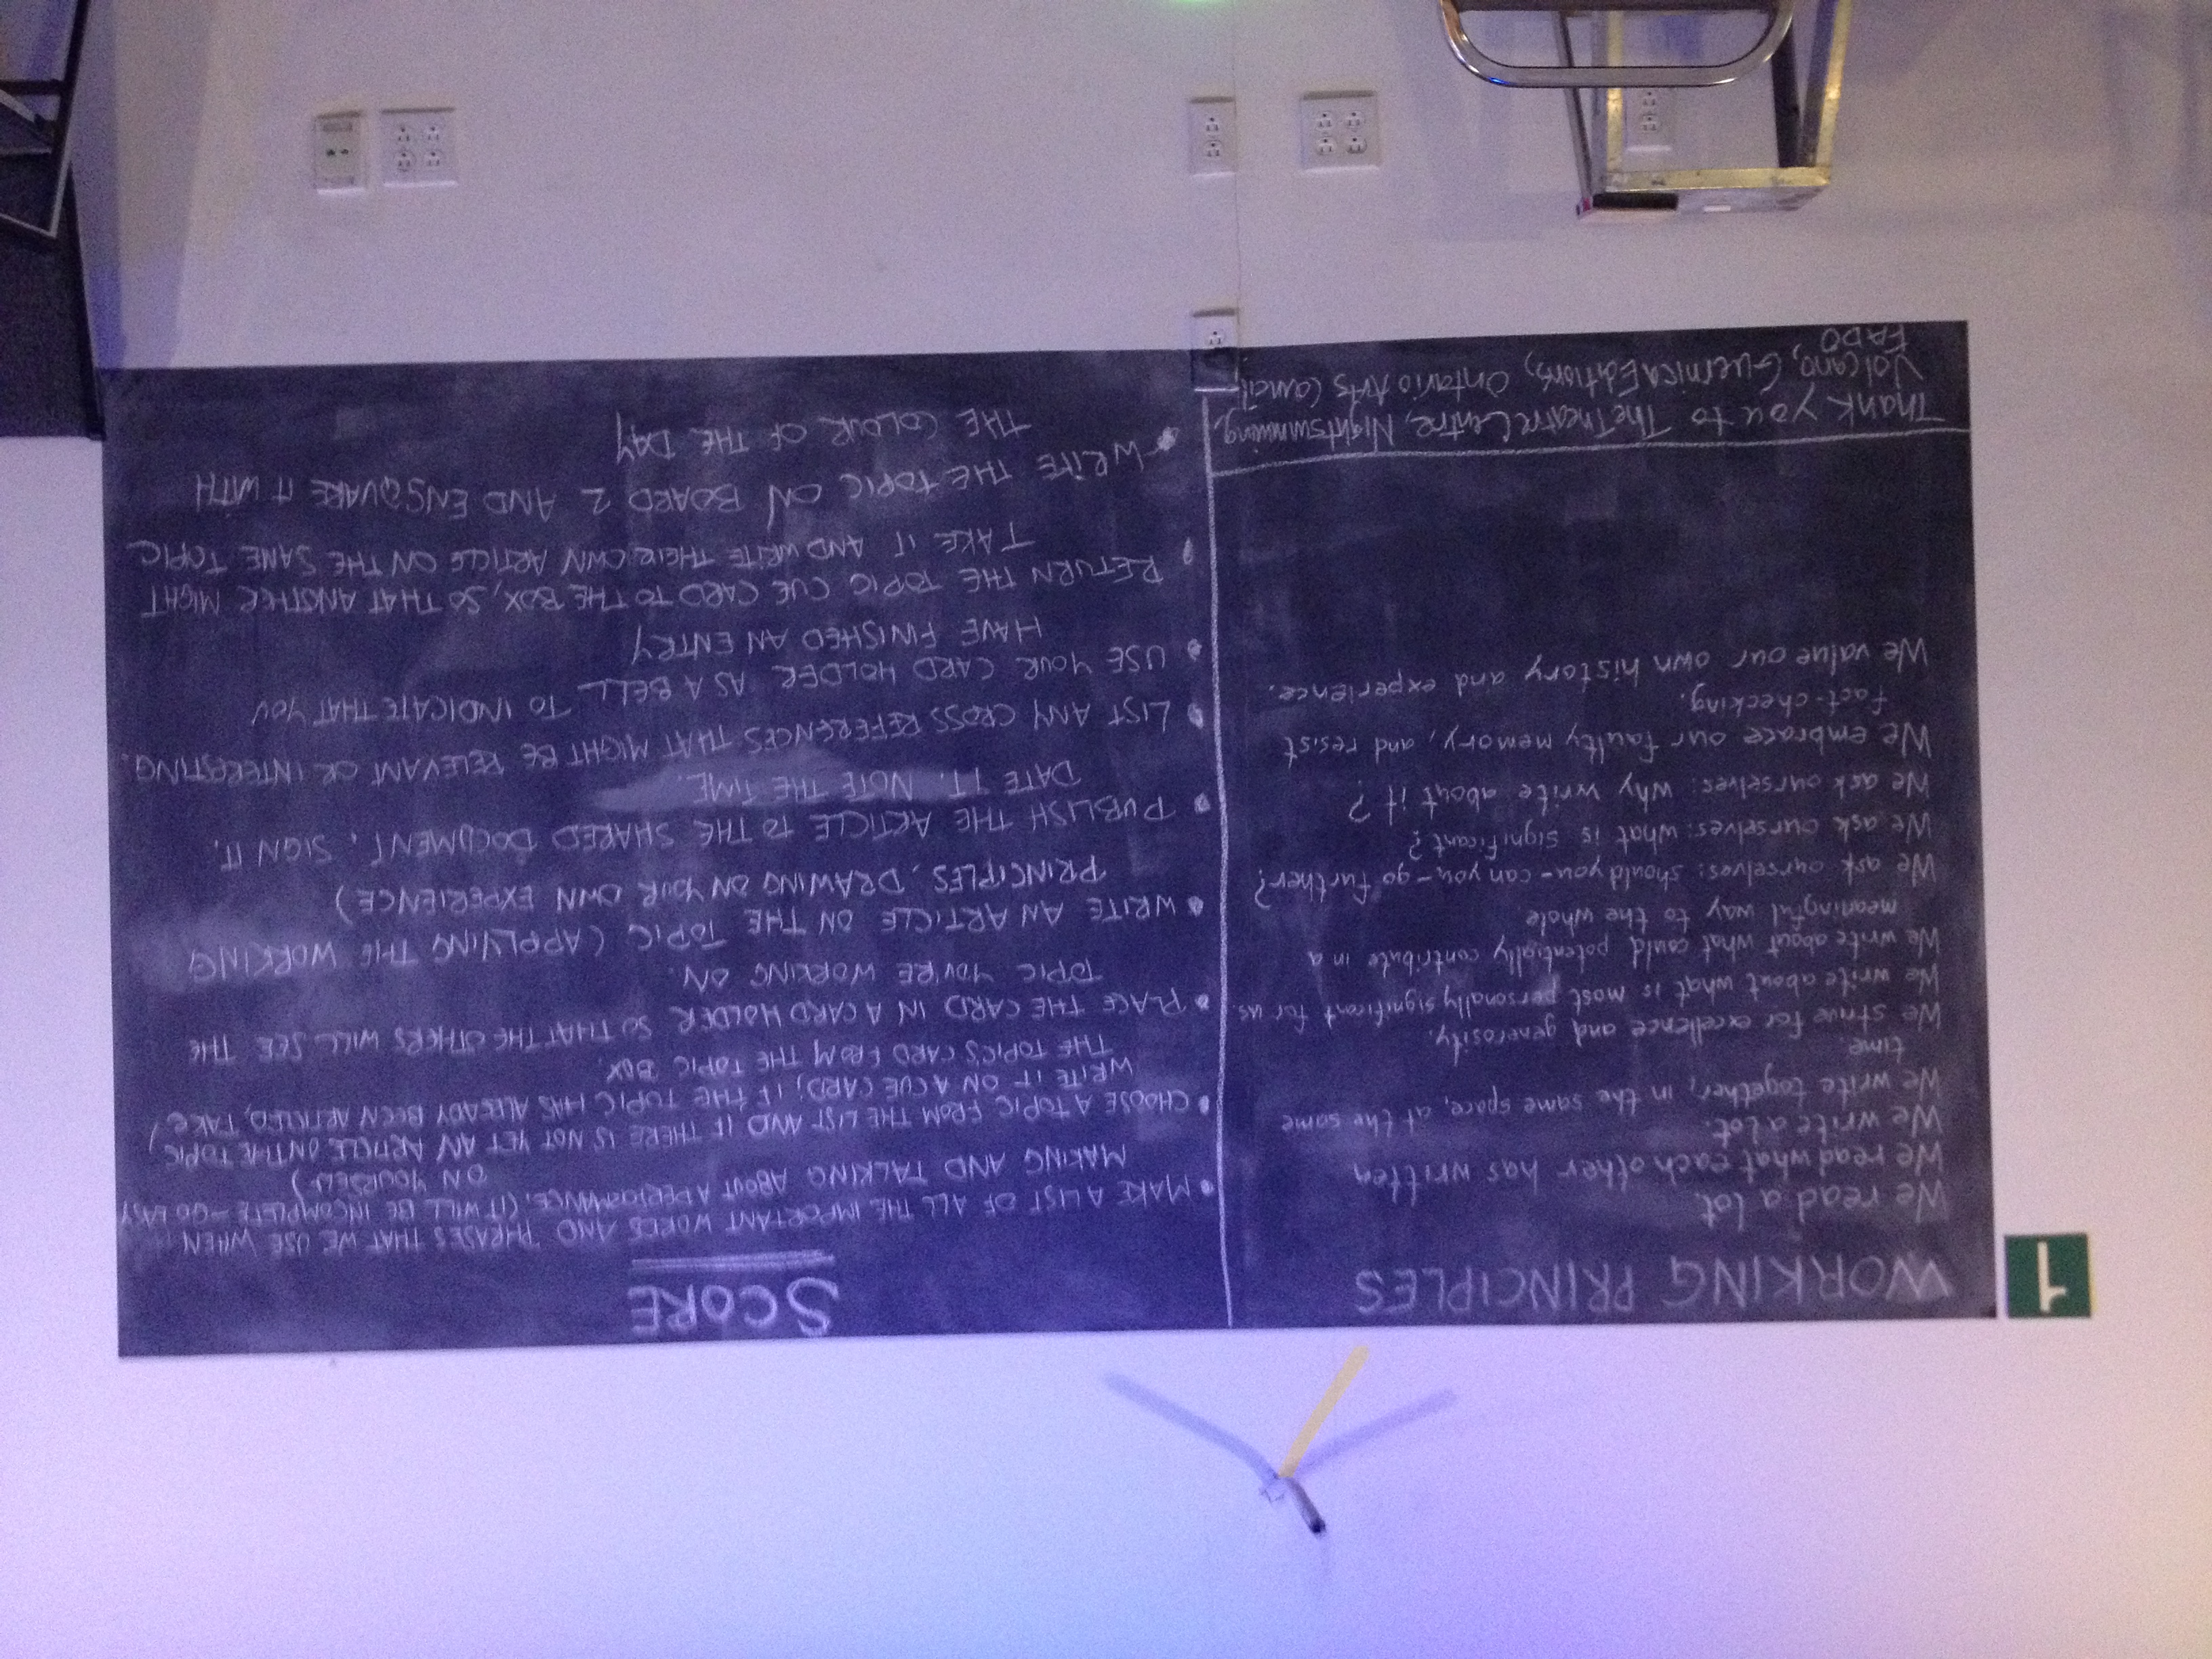 1
WORKING PRINCIPLES
We read a lot.
We read what each other has written
We write a lot.
We write together, in the same space, at the same
time.
We strive for excellence and generosity.
We write about what is most personally significant for us.
We write about what could potentially contribute in a
meaningful way to the whole.
We ask ourselves: should you-can you-go further?
We ask ourselves: what is significant?
We ask ourselves: why write about it?
We embrace our faulty memory, and resist
fact-checking.
We value our own history and experience.
Thank you to The Theatre Centre, Nightswimming,
Volcano, Guernica Editions, Ontario Arts Council,
FADO
SCORE
• MAKE A LIST OF ALL THE IMPORTANT WORDS AND PHRASES THAT WE USE WHEN
MAKING AND TALKING ABOUT A PERFORMANCE. (IT WILL BE INCOMPLETE - GO EASY
ON YOURSELF)
• CHOOSE A TOPIC FROM THE LIST AND IF THERE IS NOT YET AN ARTICLE ON THE TOPIC,
WRITE IT ON A CUE CARD; IF THE TOPIC HAS ALREADY BEEN ARTICLED, TAKE
THE TOPICS CARD FROM THE TOPIC BOX.
• PLACE THE CARD IN A CARD HOLDER SO THAT THE OTHERS WILL SEE THE
TOPIC YOU'RE WORKING ON.
• WRITE AN ARTICLE ON THE TOPIC (APPLYING THE WORKING
PRINCIPLES, DRAWING ON YOUR OWN EXPERIENCE)
• PUBLISH THE ARTICLE TO THE SHARED DOCUMENT, SIGN IT,
DATE IT. NOTE THE TIME.
• LIST ANY CROSS REFERENCES THAT MIGHT BE RELEVANT OR INTERESTING.
• USE YOUR CARD HOLDER AS A BELL TO INDICATE THAT YOU
HAVE FINISHED AN ENTRY
• RETURN THE TOPIC CUE CARD TO THE BOX, SO THAT ANOTHER MIGHT
TAKE IT AND WRITE THEIR OWN ARTICLE ON THE SAME TOPIC
• WRITE THE TOPIC ON BOARD 2 AND ENSQUARE IT WITH
THE COLOUR OF THE DAY